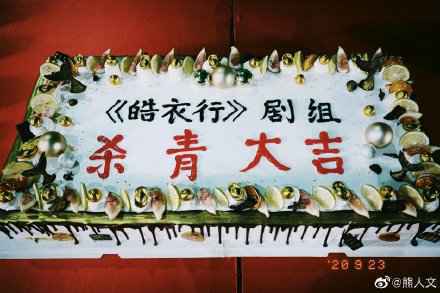 《皓衣行》剧组
杀青大吉
'20 9 23
@熊人文